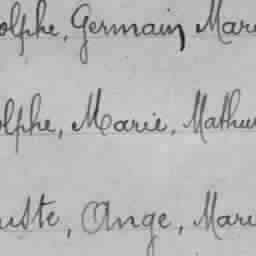 olphe, Germain Mari
olphe, Marie, Mathu
uste, Ange, Mari